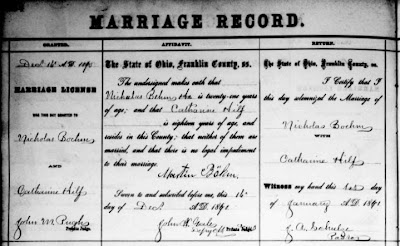 MARRIAGE RECORD.
GRANTED.
Decr 14 A.D. 1890
MARRIAGE LICENSE
WAS THIS DAY GRANTED TO
Nicholas Boehm
AND
Catharine Hilf
John M. Pugh
Probate Judge.
AFFIDAVIT.
The State of Ohio, Franklin County, ss.
The undersigned makes oath that
Nicholas Boehm is twenty-one years
of age; and that Catharine Hilf
is eighteen years of age, and
resides in this County; that neither of them are
married, and that there is no legal impediment
to their marriage.
Martin Böhm.
Sworn to and subscribed before me, this 14
day of Decr A.D. 189
John M.
Probate Judge.
RETURN.
The State of Ohio, Franklin County, ss.
I Certify that I
this day solemnized the Marriage of
Nicholas Boehm
WITH
Catharine Hilf
WITNESS my hand this 1st day
of January A.D. 1891
Pastor